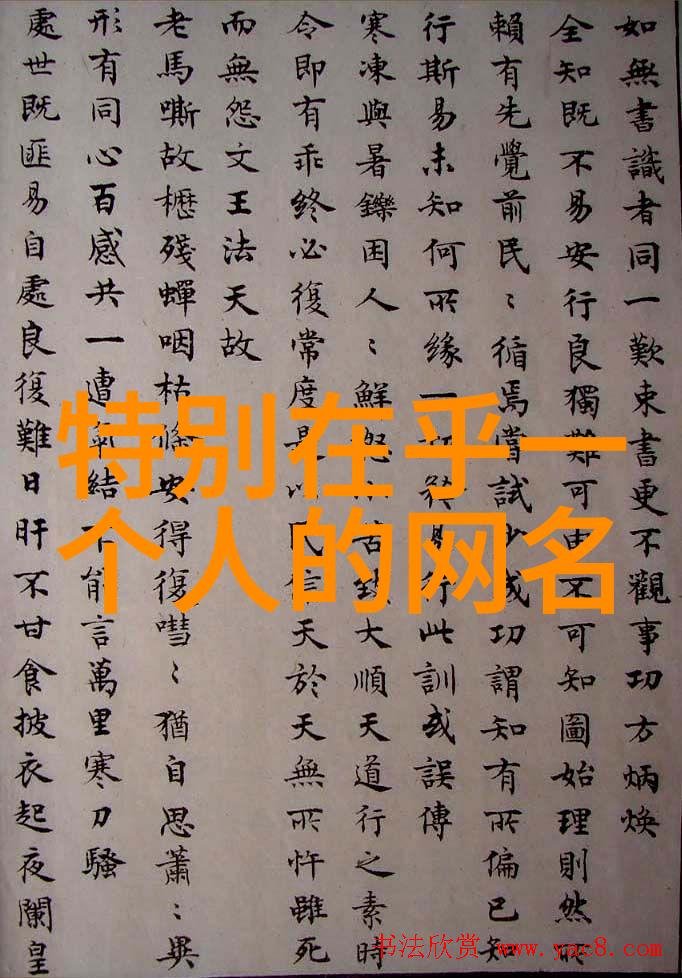 如無書識者同一歎束書更不觀事功方炳煥
全知既不易安行良獨難可由不可知圖始理則然所
賴有先覺前民〻循焉嘗試少成功謂知有所偏已知
行斯易未知何所緣一務易行此訓或誤傳
寒凍與暑鑠困人〻鮮怨大順天道行之素時
令即有乖終必復常度是以民信天於天無所忤雖死
而無怨文王法天故
老馬嘶故櫪殘蟬咽枯條安得復嘒〻猶自思蕭〻異
形有同心百感共一遭氣結不能言萬里寒刀騷
處世既匪易自處良復難日旰不甘食披衣起夜闌皇
特别在乎一
个人的网名
书法欣赏 www.yac8.com